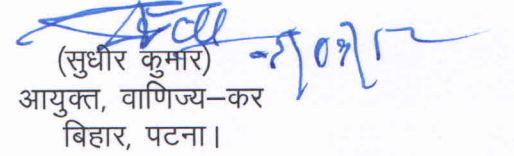 (सुधीर कुमार)
आयुक्त, वाणिज्य–कर
बिहार, पटना।